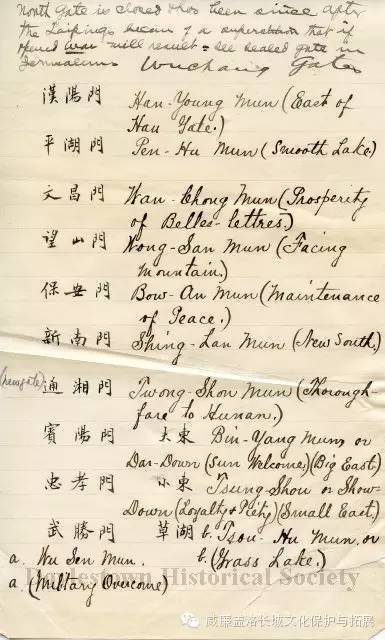 North Gate is closed & has been since after
the Taipings because of a superstition that if
opened war will result - see sealed gate in
Jerusalem
Wuchang Gates
漢陽門 Han-Young Mun (East of
Han Gate.)
平湖門 Pen-Hu Mun (Smooth Lake)
文昌門 Wan-Chong Mun (Prosperity
of Belles-lettres.)
望山門 Wong-San Mun (Facing
Mountain.)
保安門 Bow-An Mun (Maintenance
of Peace.)
新南門 Shing-Lan Mun (New South.)
(new gate) 通湘門 Twong-Shon Mun (Thorough-
fare to Hunan.)
賓陽門 大東 Bin-Yang Mun, or
Dar-Down (Sun Welcome) (Big East.)
忠孝門 小東 Tsung-Shou or Show-
Down (Loyalty & Piety) (Small East.)
武勝門 草湖 b. Tsou-Hu Mun, or
a. Wu Sen Mun. b. (Grass Lake.)
a. (Military Overcome)
Historical Society
威廉盖洛长城文化保护与拓展